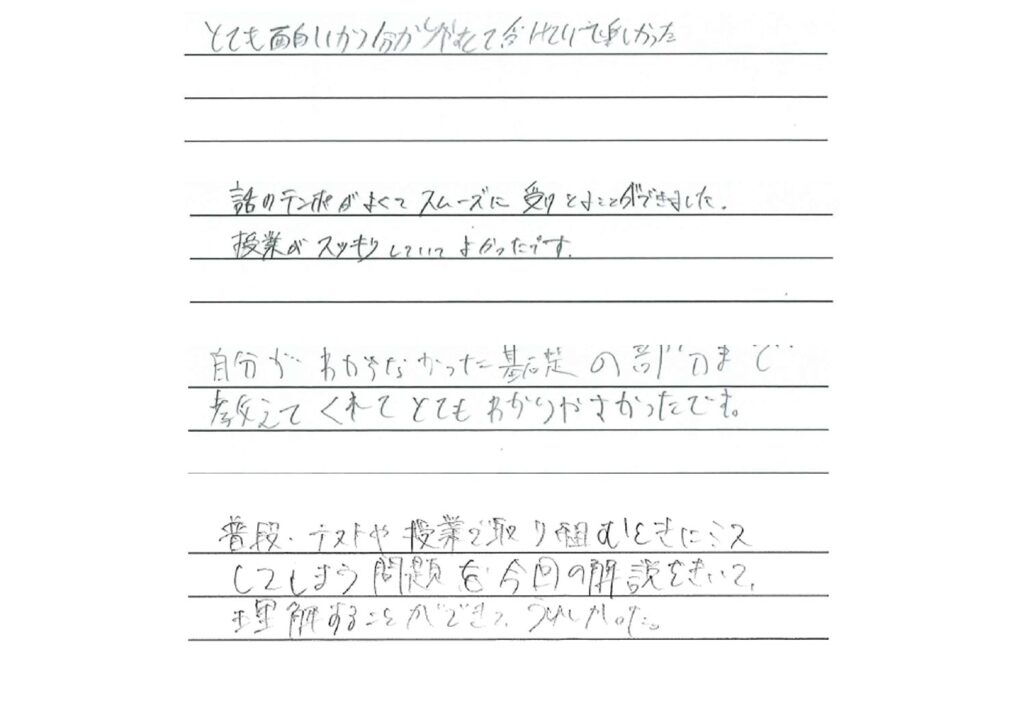 とても面白いかつ分かりやすくて
楽しかった
話のテンポがよくてスムーズに受けとることができました。
授業がスッキリしていてよかったです。
自分がわからなかった基礎の部分まで
教えてくれてとてもわかりやすかったです。
普段、テストや授業で取り組むときにミス
してしまう問題を今回の解説をきいて、
理解することができて、うれしかった。